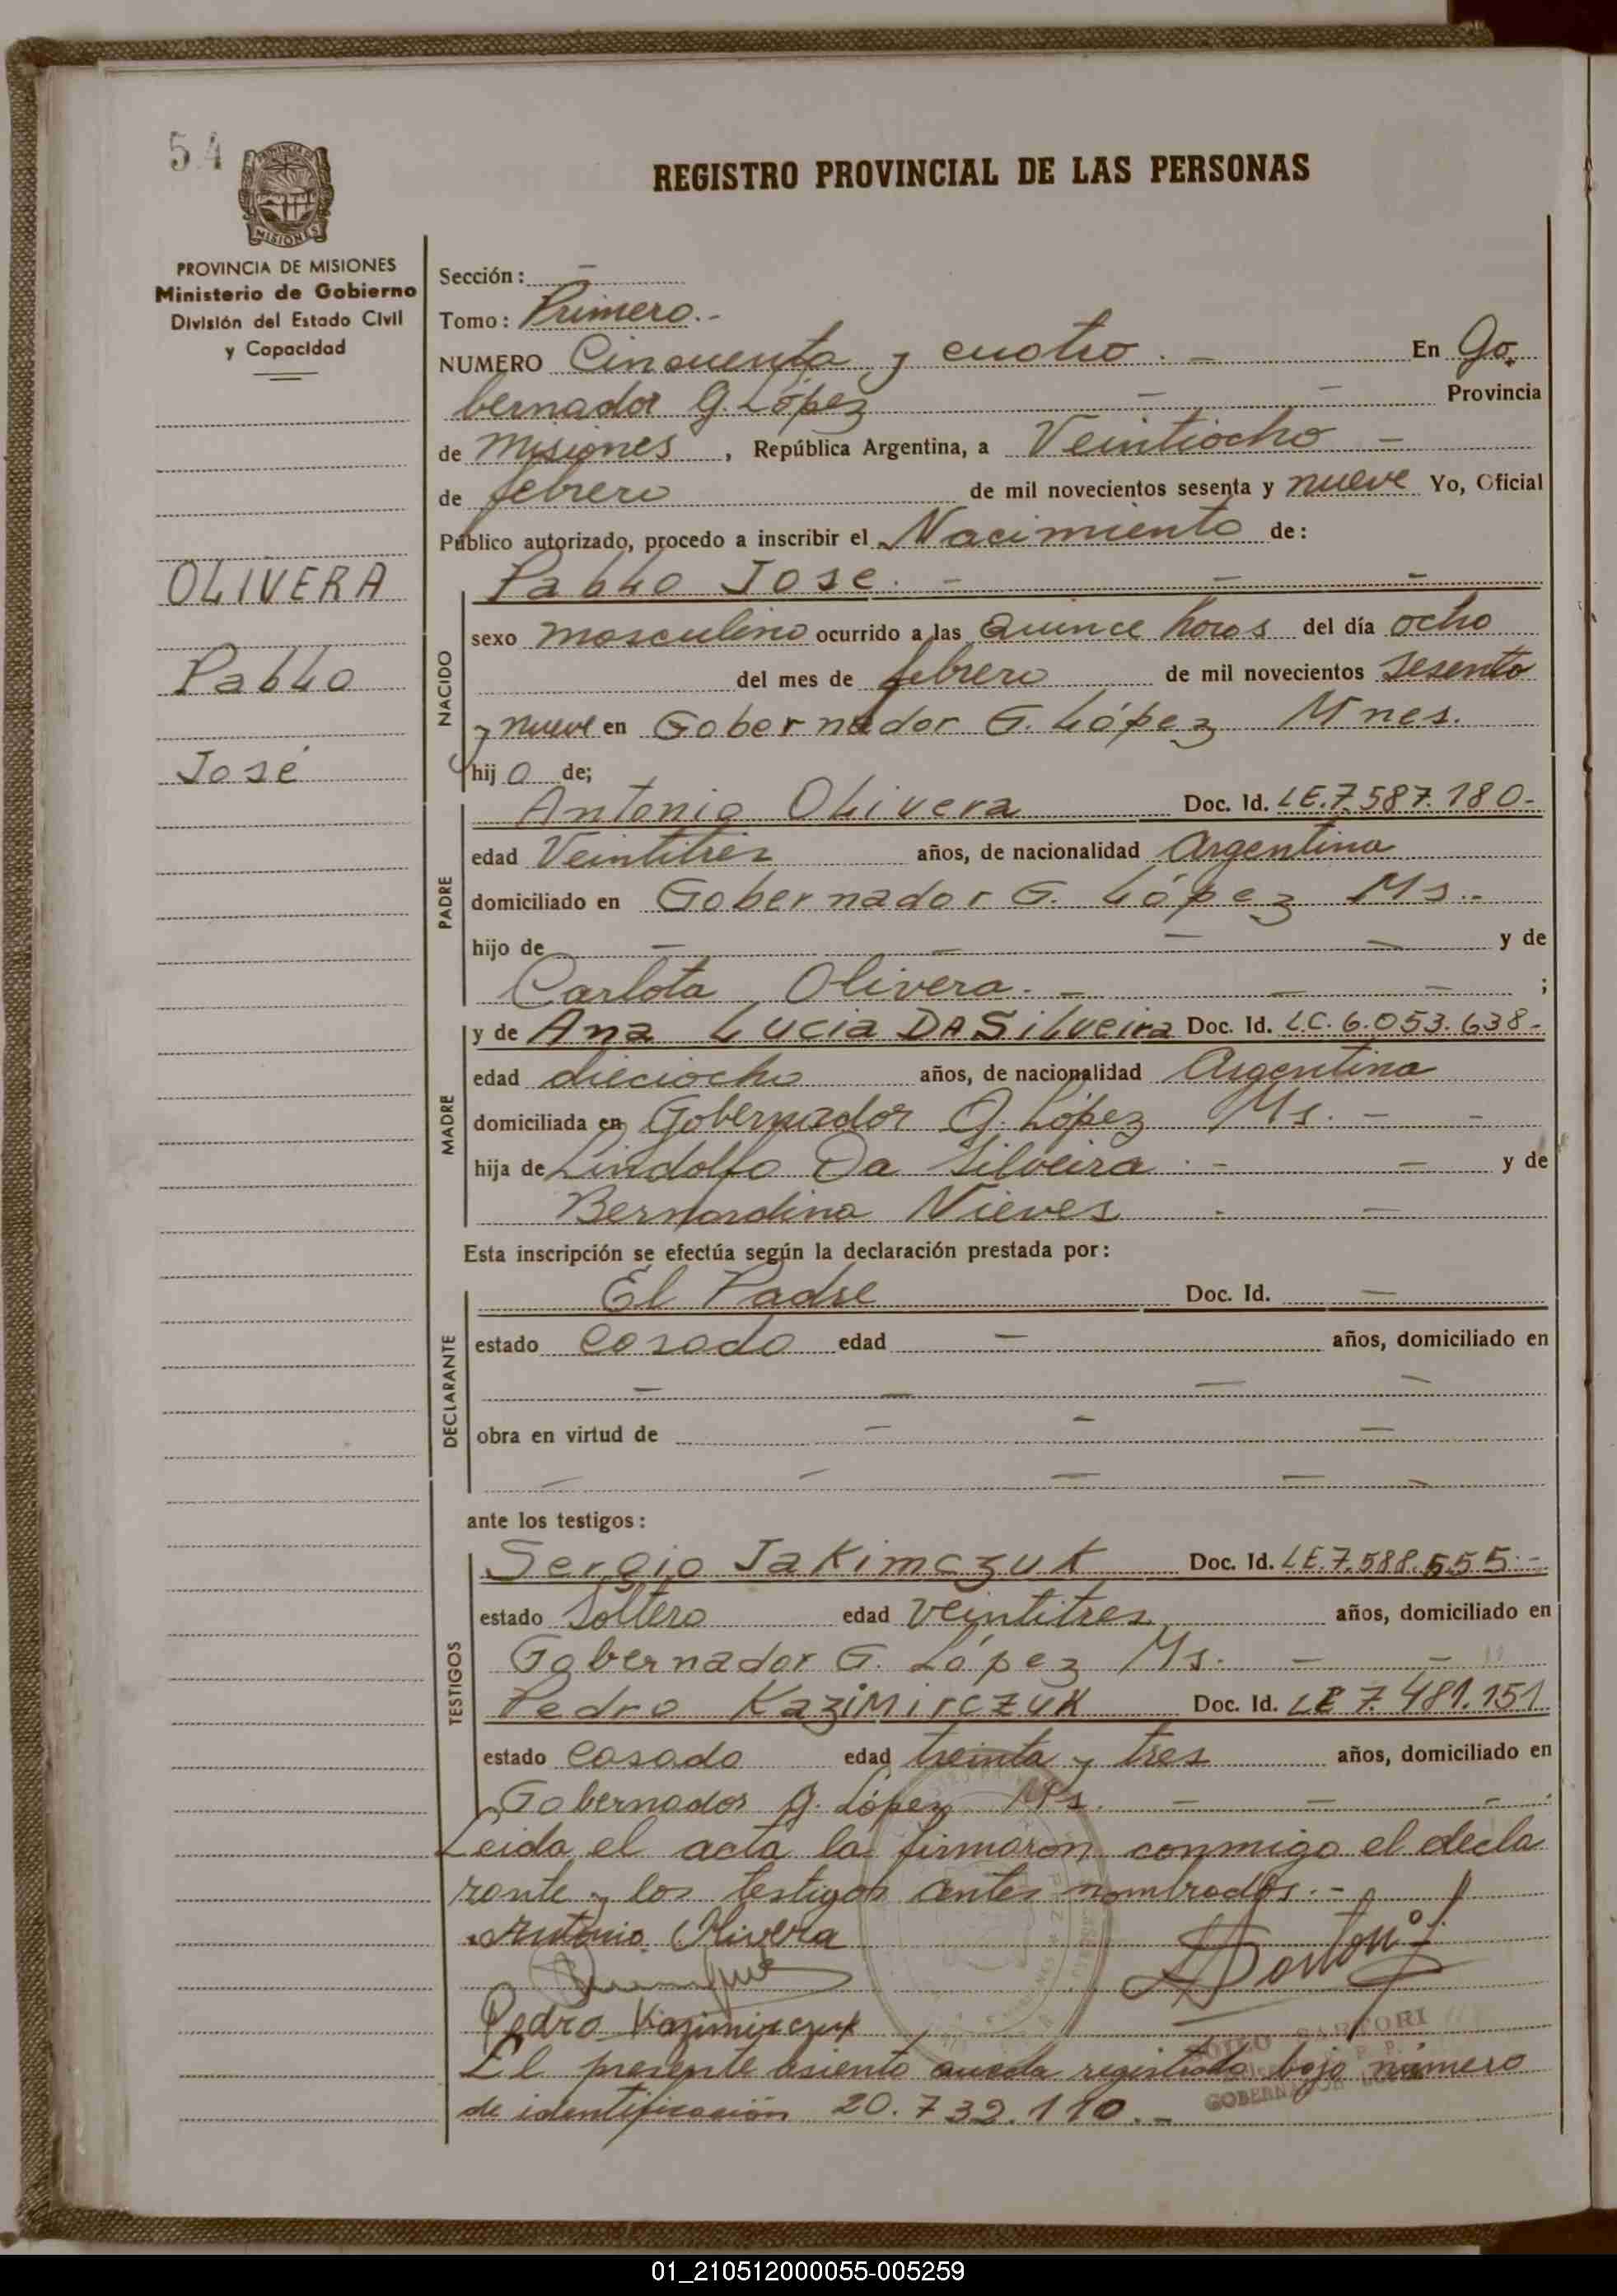 54
PROVINCIA DE MISIONES
Ministerio de Gobierno
División del Estado Civil
y Capacidad
REGISTRO PROVINCIAL DE LAS PERSONAS
Sección: –
Tomo: Primero.-
NUMERO Cincuenta y cuatro. – En Go.
bernador G. López – – Provincia
de Misiones, República Argentina, a Veintiocho –
de febrero de mil novecientos sesenta y nueve Yo, Oficial
Público autorizado, procedo a inscribir el Nacimiento de:
OLIVERA
Pablo
José
NACIDO
Pablo José. – – –
sexo masculino ocurrido a las Quince horas del día ocho
del mes de febrero de mil novecientos sesenta
y nueve en Gobernador G. López Mnes.
hijo de;
PADRE
Antonio Olivera Doc. Id. LE.7.587.180-
edad Veintitres años, de nacionalidad Argentina
domiciliado en Gobernador G. López Ms.-
hijo de – – – – y de
Carlota Olivera. – – – ;
MADRE
y de Ana Lucia DA SiLveira Doc. Id. L.C. 6.053.638-
edad dieciocho años, de nacionalidad Argentina
domiciliada en Gobernador G. López Ms. – –
hija de Lindolfo Da Silveira . – – y de
Bernardina Nieves - –
Esta inscripción se efectúa según la declaración prestada por:
DECLARANTE
El Padre Doc. Id. –
estado Casado edad – años, domiciliado en
– – – –
obra en virtud de – – –
– – – – –
ante los testigos:
TESTIGOS
Sergio Jakimczuk Doc. Id. LE.7.588.555.-
estado Soltero edad Veintitres años, domiciliado en
Gobernador G. López Ms. – –
Pedro KaziMirczuk Doc. Id. LE 7.481.151
estado Casado edad treinta y tres años, domiciliado en
Gobernador G. López Ms. – – -
Leida el acta la firmaron conmigo el decla
rante y los testigos antes nombrados.-
Antonio Olivera
Pedro Kazimirczuk
SARTORI
GOBERNADOR
El presente asiento queda registrado bajo número
de identificación 20.732.110.-
01_210512000055-005259